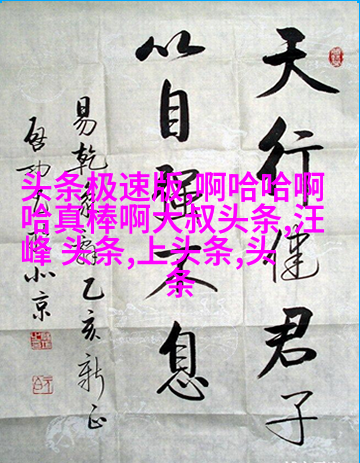 天行健君子
以自强不息
易乾象辞乙亥新正
启功
北京
头条极速版,啊哈哈啊
哈真棒啊大叔头条,汪
峰 头条,上头条,头
条